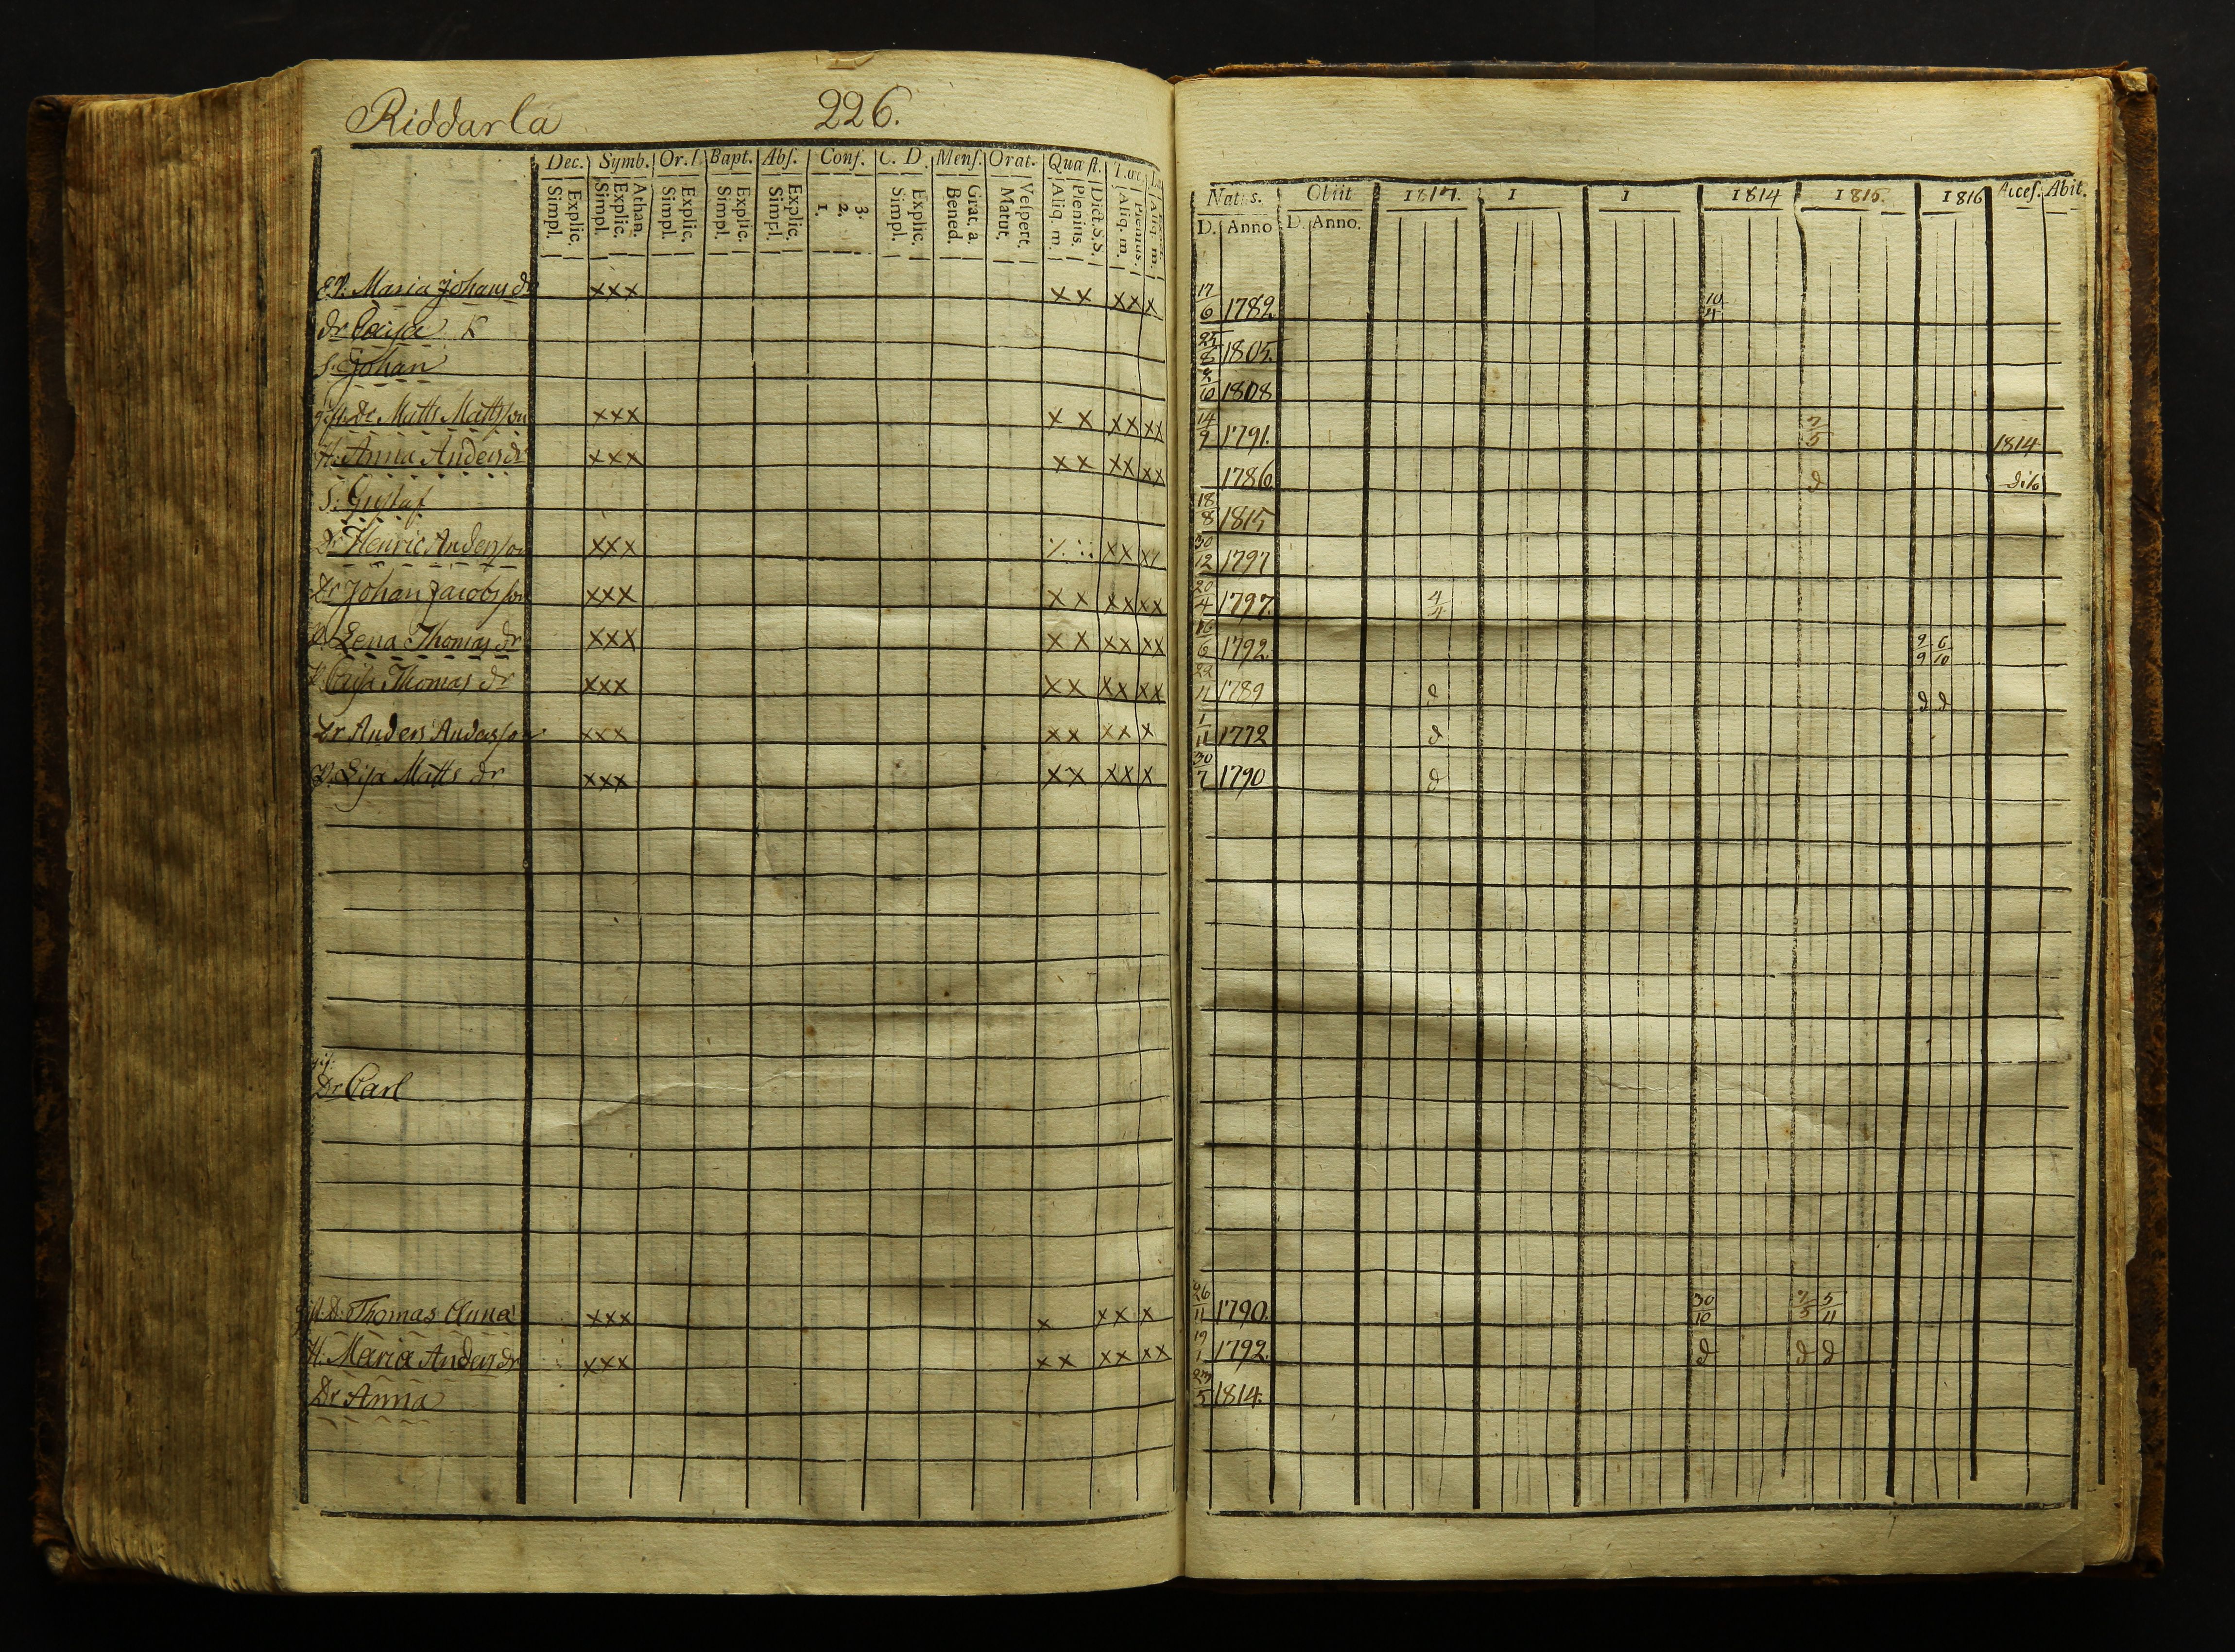 Riddarla 226.
Dec. Symb. Or. Bapt. Abs. Conf. C. D. Mens. Orat. Quæst.
Explic. Simpl. Athan. Explic. Simpl. Explic. Simpl. Explic. Simpl. Explic. Simpl. 3. 2. 1. Explic. Simpl. Grat. a. Bened. Vespert. Matut. Dict. S.S. Plenius. Aliq. m. Plenius. Aliq. m. Aliq. m.
Natus. Obiit 1817. 1 1 1814 1815. 1816 Acces. Abit.
D. Anno D. Anno.
Maria Johans dr xxx xx xx x 17/6 1782 10/4
dr Cajsa 25/8 1805.
S. Johan /10 1808
Matts Mattsson xxx x x xx xx 14/9 1791. 7/5 1814
H. Anna Anders dr xxx xx xx xx 1786 d dito
S. Gustaf 18/8 1815
Dr Henric Andersson xxx xx 30/12 1797
Dr Johan Jacobsson xxx x x xx xx 20/4 1797. 4/4
Lena Thomas dr xxx x x xx xx 16/6 1792. 9/9 6/10
Cajsa Thomas dr xxx xx xx xx 22/11 1789 d d d
Dr Anders Andersson xxx xx xx x 1/11 1772 d
Lisa Matts dr xxx xx xx x 30/7 1790 d
Dr Carl
Thomas xxx x xx x 26/11 1790. 30/10 7/5 5/11
H. Maria Anders dr xxx xx xx xx 19/1 1792. d d d
Dr Anna 1814.